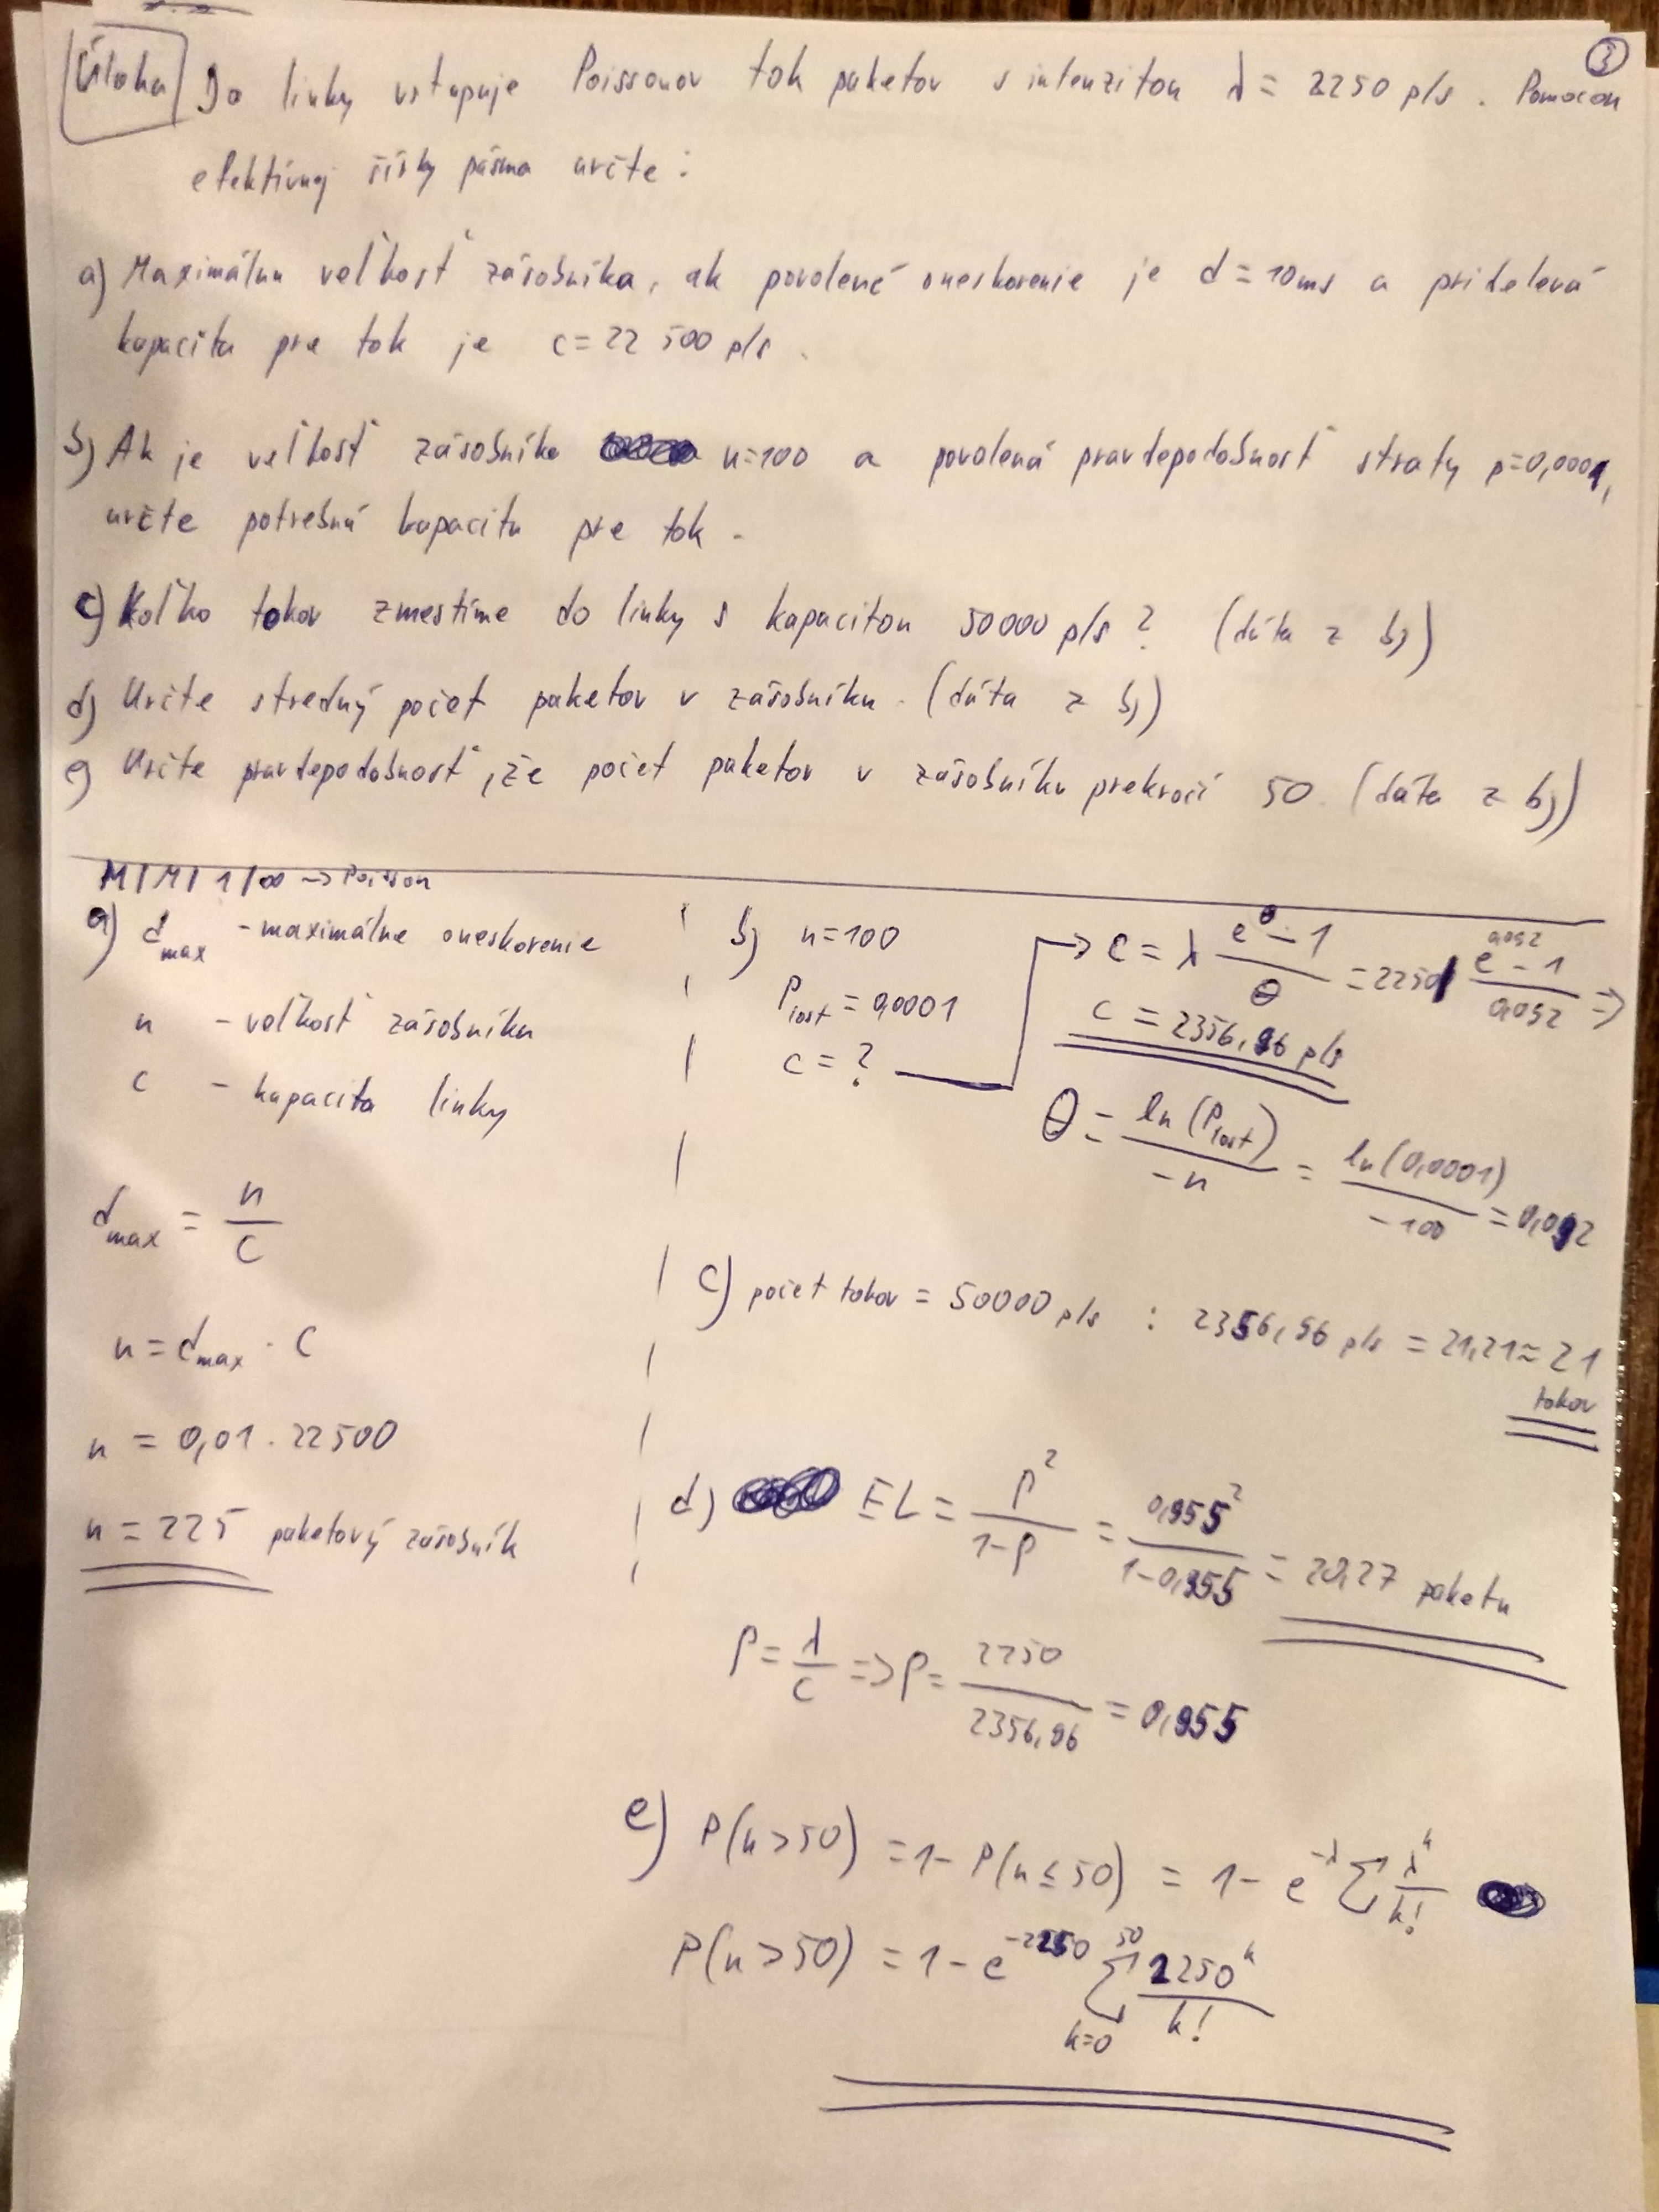 ③
Úloha Do linky vstupuje Poissonov tok paketov s intenzitou λ = 2250 p/s. Pomocou
efektívnej šírky pásma určte:
a) Maximálnu veľkosť zásobníka, ak povolené oneskorenie je d = 10ms a pridelená
kapacita pre tok je c = 22 500 p/s.
b) Ak je veľkosť zásobníka n=100 a povolená pravdepodobnosť straty p=0,0001,
určte potrebnú kapacitu pre tok.
c) Koľko tokov zmestíme do linky s kapacitou 50000 p/s? (dáta z b))
d) Určte stredný počet paketov v zásobníku. (dáta z b))
e) Určte pravdepodobnosť, že počet paketov v zásobníku prekročí 50. (dáta z b))
M/M/1/∞ -> Poisson
a) d_max - maximálne oneskorenie
n - veľkosť zásobníku
c - kapacita linky
d_max = n/c
n = d_max · c
n = 0,01 · 22500
n = 225 paketový zásobník
b) n=100
P_lost = 0,0001
c = ?
-> c = λ (e^θ - 1)/θ = 2250 (e^0,092 - 1)/0,092 =>
c = 2356,96 p/s
θ = ln(P_lost)/-n = ln(0,0001)/-100 = 0,092
c) počet tokov = 50000 p/s : 2356,96 p/s = 21,21 ≈ 21
tokov
d) EL = ρ²/(1-ρ) = 0,955²/(1-0,955) = 20,27 paketu
ρ = λ/c => ρ = 2250/2356,96 = 0,955
e) P(n>50) = 1 - P(n≤50) = 1 - e^-λ Σ λ^k/k!
P(n>50) = 1 - e^-2250 Σ_{k=0}^{50} 2250^k/k!